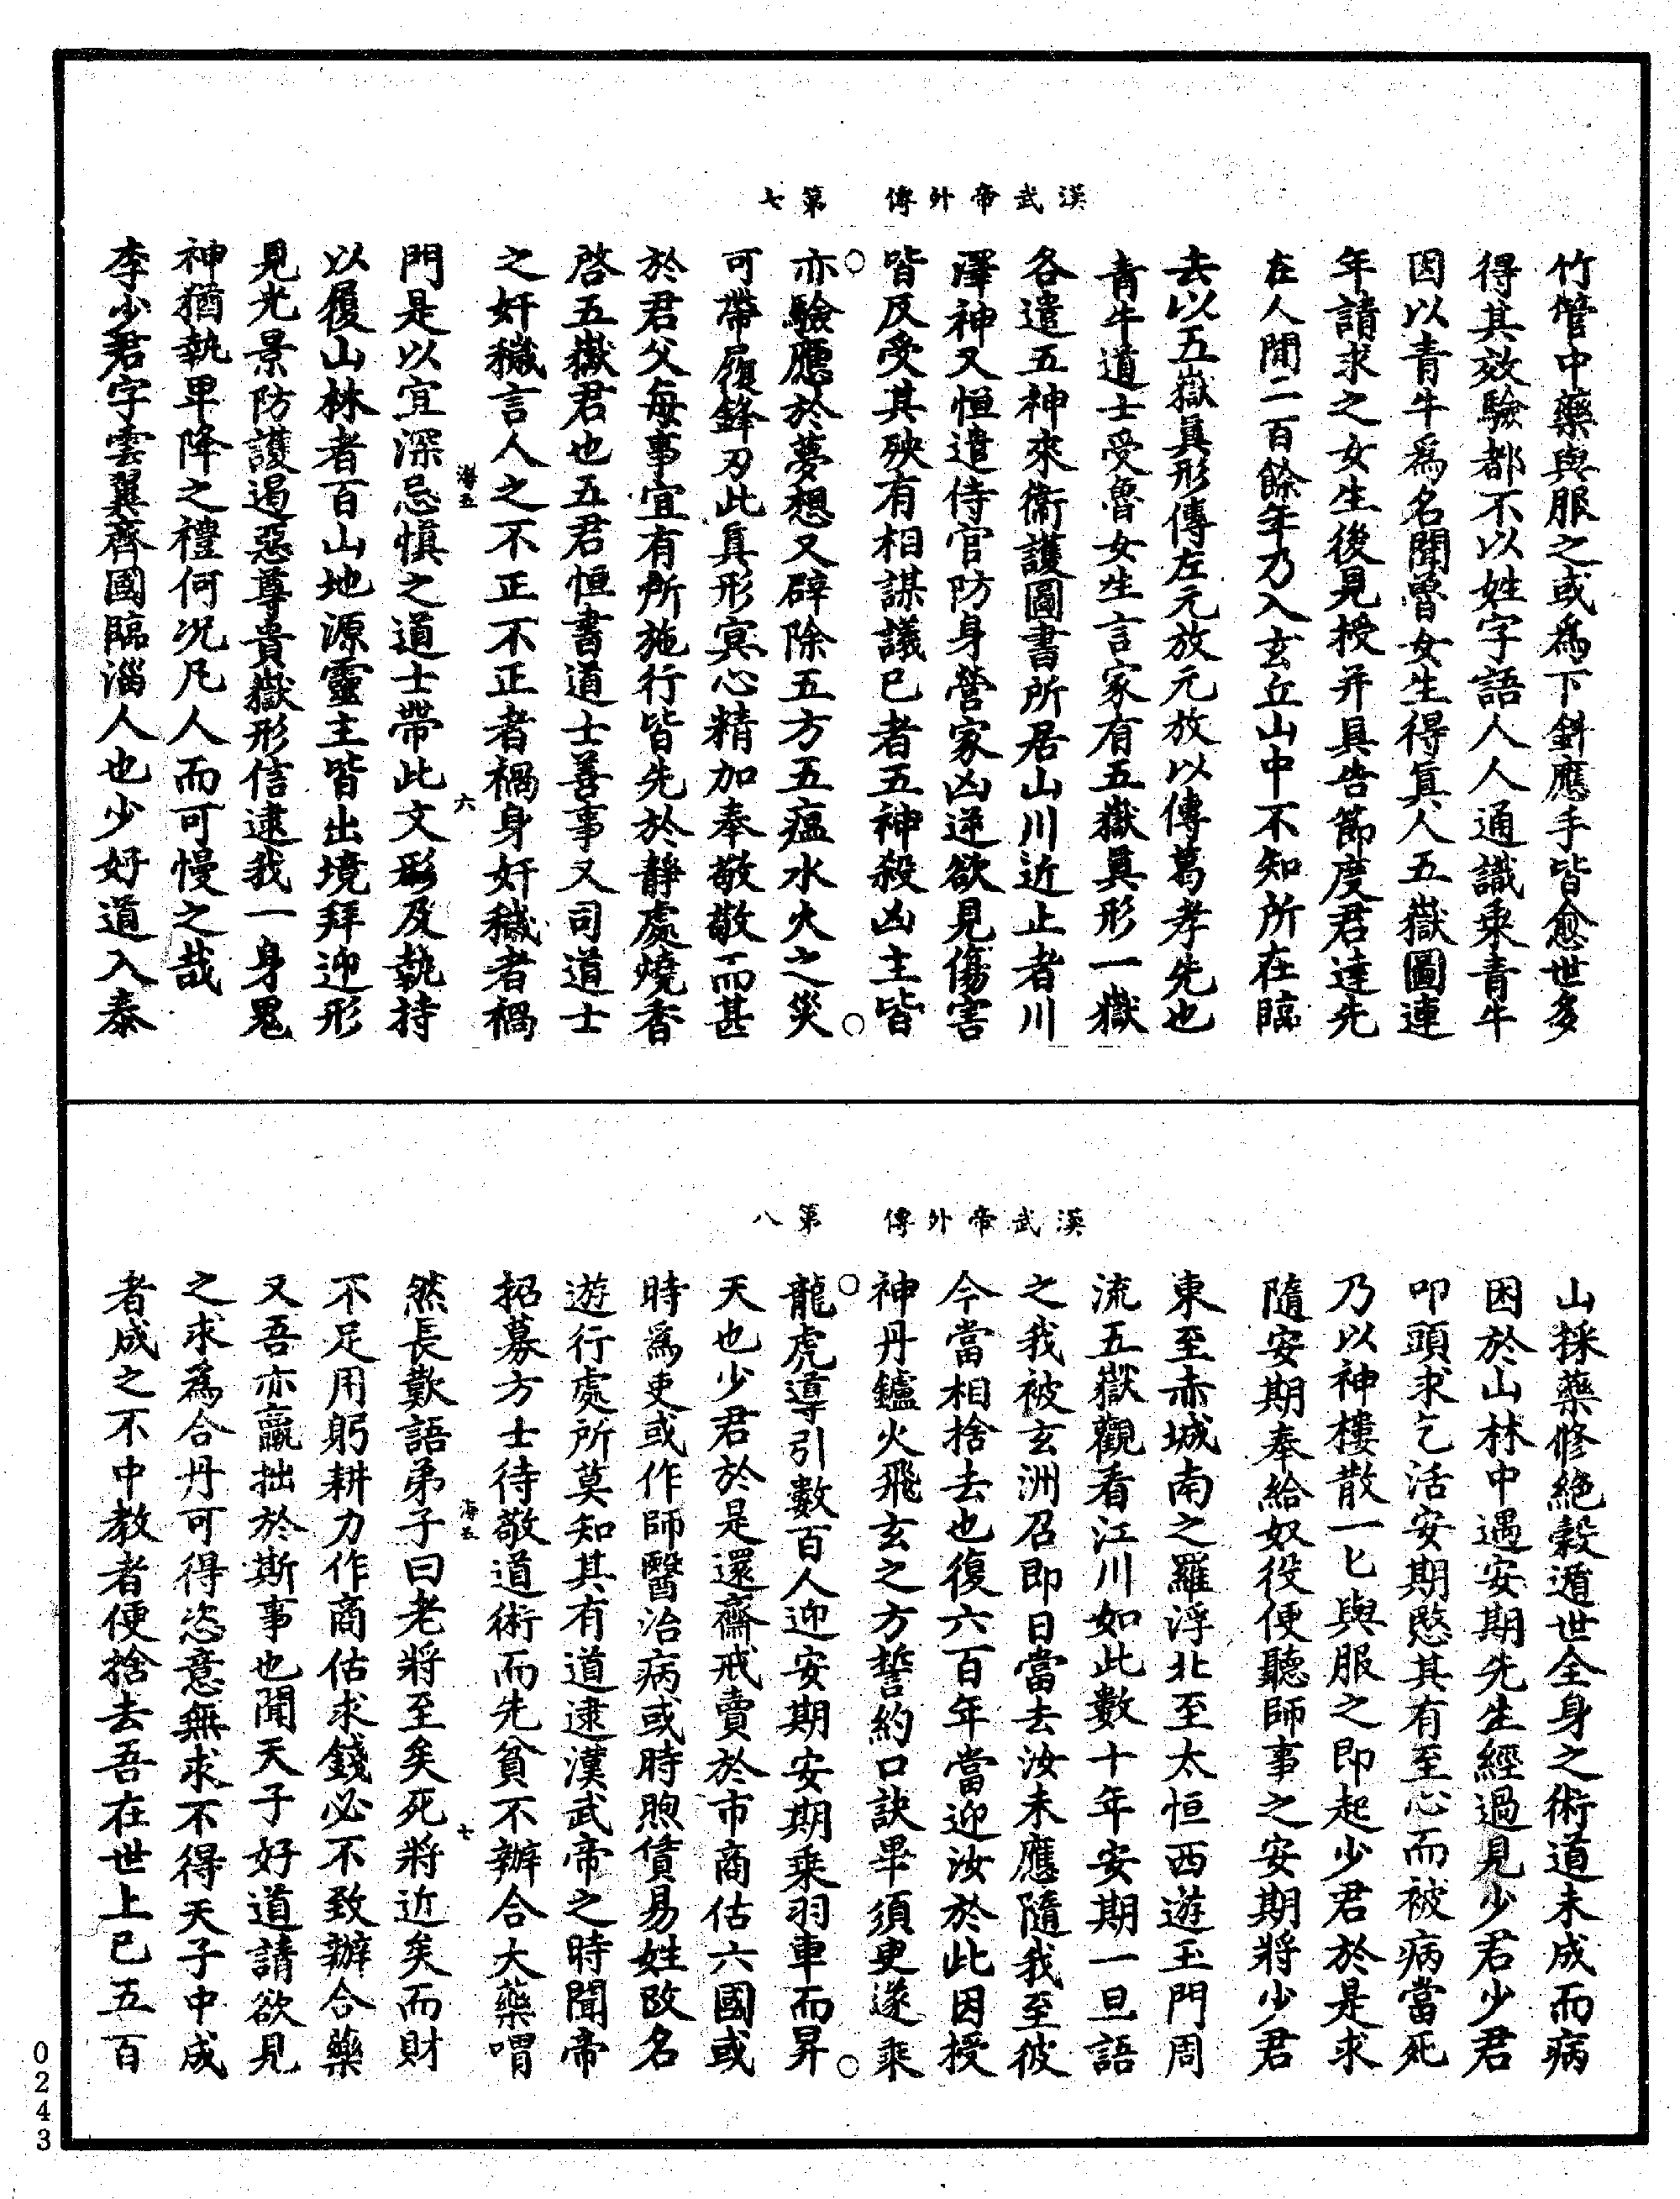 漢武帝外傳 第七
竹管中藥與服之或爲下針應手皆愈世多
得其效驗都不以姓字語人人通識乘青牛
因以青牛爲名聞魯女生得眞人五嶽圖連
年請求之女生後見授幷具告節度君達先
在人間二百餘年乃入玄丘山中不知所在臨
去以五嶽眞形傳左元放元放以傳葛孝先也
青牛道士受魯女生言家有五嶽眞形一嶽
各遣五神來衞護圖書所居山川近止者川
澤神又恒遣侍官防身營家凶逆欲見傷害
皆反受其殃有相謀議已者五神殺凶主皆
亦驗應於夢想又辟除五方五瘟水火之災
可帶履鋒刃此眞形冥心精加奉敬敬而甚
於君父每事宜有所施行皆先於静處燒香
啓五嶽君也五君恒書道士善事又司道士
之奸穢言人之不正不正者禍身奸穢者禍
海五 六
門是以宜深忌愼之道士帶此文彩及執持
以履山林者百山地源靈主皆出境拜迎形
見光景防護遏惡尊貴嶽形信逮我一身鬼
神猶執卑降之禮何况凡人而可慢之哉
李少君字雲翼齊國臨淄人也少好道入泰
漢武帝外傳 第八
山採藥修絶穀遁世全身之術道未成而病
困於山林中遇安期先生經過見少君少君
叩頭求乞活安期愍其有至心而被病當死
乃以神樓散一匕與服之即起少君於是求
隨安期奉給奴役便聽師事之安期將少君
東至赤城南之羅浮北至太恒西遊玉門周
流五嶽觀看江川如此數十年安期一旦語
之我被玄洲召即日當去汝未應隨我至彼
今當相捨去也復六百年當迎汝於此因授
神丹鑪火飛玄之方誓約口訣畢須臾遂乘
龍虎導引數百人迎安期安期乘羽車而昇
天也少君於是還齋戒賣於市商估六國或
時爲吏或作師醫治病或時煦賃易姓改名
遊行處所莫知其有道逮漢武帝之時聞帝
招募方士待敬道術而先貧不辦合大藥喟
海五 七
然長歎語弟子曰老將至矣死將近矣而財
不足用躬耕力作商估求錢必不致辦合藥
又吾亦羸拙於斯事也聞天子好道請欲見
之求爲合丹可得恣意無求不得天子中成
者成之不中教者便捨去吾在世上已五百
0243